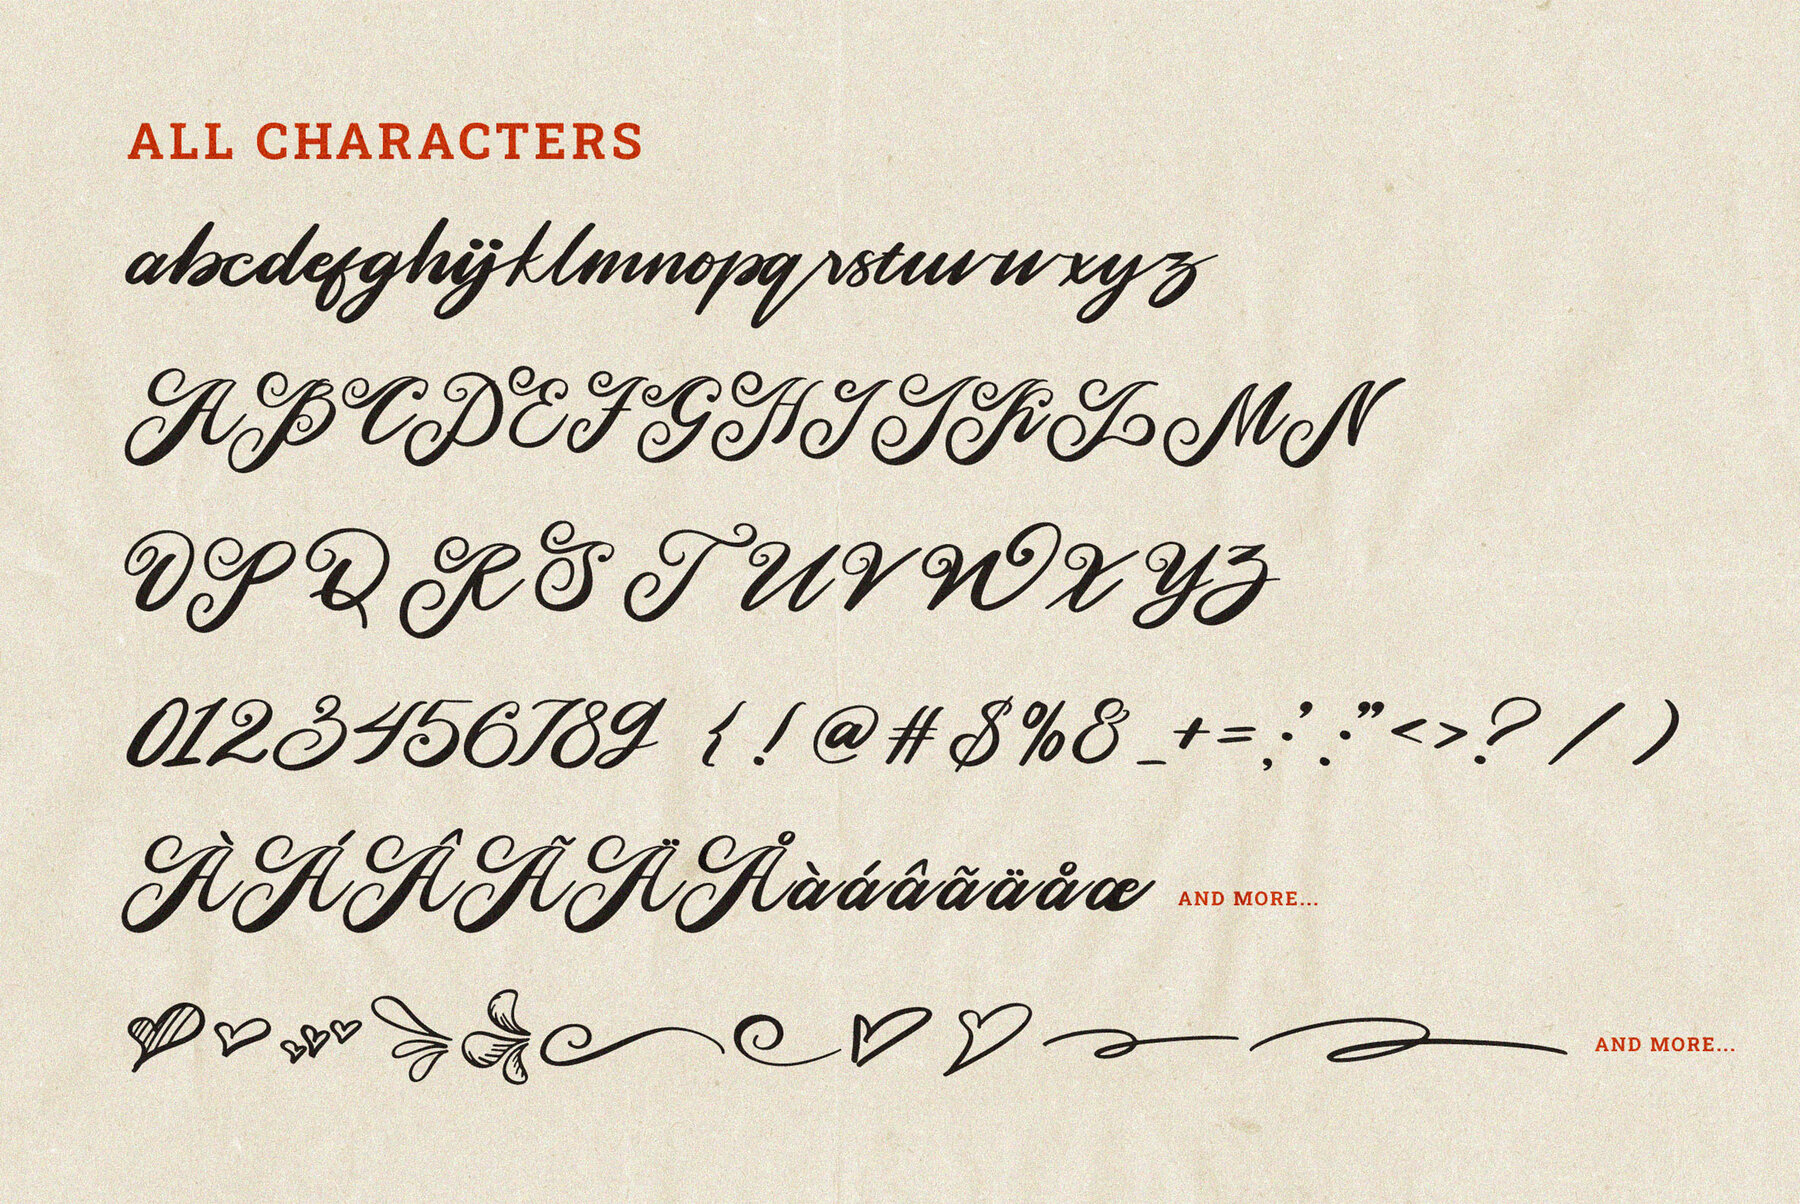 ALL CHARACTERS
abcdefghijklmnopqrstuvwxyz
ABCDEFGHIJKLMN
OPQRSTUVWXYZ
0123456789 { ! @ # $ % & _ + = ; ' : " < > ? / )
ÀÁÂÃÄÅàáâãäåæ AND MORE...
AND MORE...